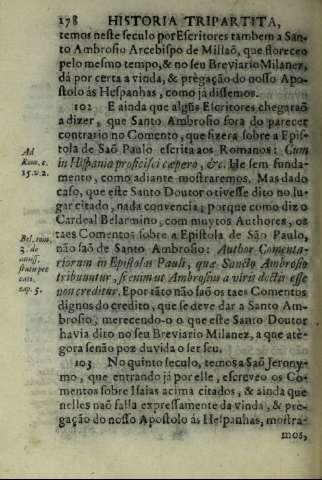 178 HISTORIA TRIPARTITA,
temos neste seculo por Escritores tambem a San-
to Ambrosio Arcebispo de Millaõ, que floreceo
pelo mesmo tempo, & no seu Breviario Milanez,
dá por certa a vinda, & prègação do nosso Apo-
stolo ás Hespanhas, como já dissemos.
102 E ainda que algũs Escritores chegaraõ
a dizer, que Santo Ambrosio fora do parecer
contrario no Comento, que fizera sobre a Epis-
tola de Saõ Paulo escrita aos Romanos: Cum
in Hispania proficisci cæpero, &c. He sem funda-
mento, como adiante mostraremos. Mas dado
caso, que este Santo Doutor o tivesse dito no lu-
gar citado, nada convencia; porque como diz o
Cardeal Belarmino, com muytos Authores, os
taes Comentos sobre a Epistola de Saõ Paulo,
não saõ de Santo Ambrosio: Author Comenta-
riorum in Epistolas Pauli, quæ Sancto Ambrosio
tribuuntur, si enim ut Ambrosius a viris doctis esse
non creditur. E por tãto não saõ os taes Comentos
dignos do credito, que se deve dar a Santo Am-
brosio, merecendo-o o que este Santo Doutor
havia dito no seu Breviario Milanez, a que atè-
gora senão poz duvida o ser seu.
103 No quinto seculo, temos a Saõ Jerony-
mo, que entrando já por elle, escreveo os Co-
mentos sobre Isaías acima citados, & ainda que
nelles naõ falla expressamente da vinda, & pre-
gação do nosso Apostolo ás Hespanhas, mostra-
mos,
Ad
Rom. c.
15. v. 2.
Bel. tom.
3. de
amiss.
statu pec
cati.
cap. 5.